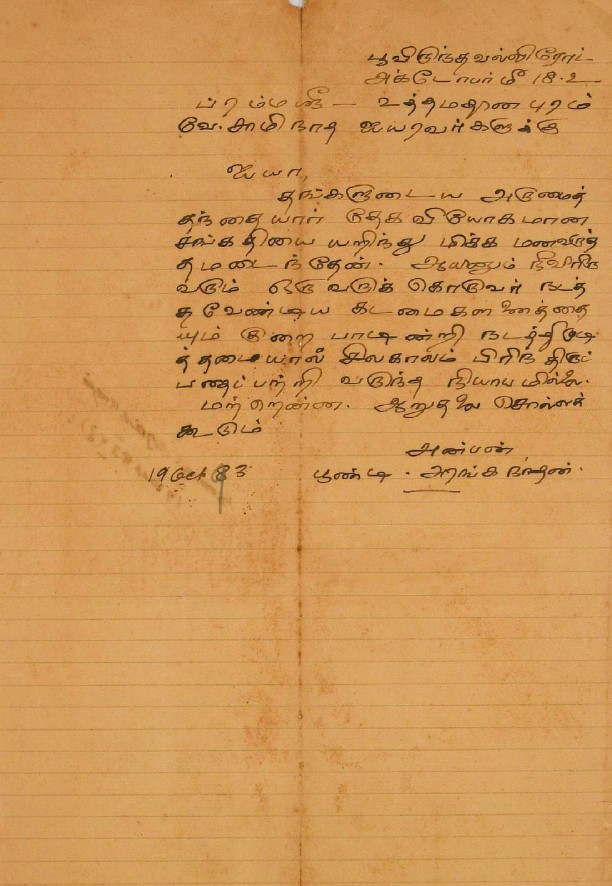 பூவிருந்தவல்லிரோட்
அக்டோபர் மீ 18.உ
ப்ரம்மஸ்ரீ — உத்தமதானபுரம்
வே. சாமிநாத ஐயரவர்களுக்கு
ஐயா,
தங்களுடைய அருமைத்
தந்தையார் தேகவியோகமான
சங்கதியை யறிந்து மிக்க மனவருத்
தமடைந்தேன். ஆயினும் நீவிரிரு
வரும் ஒருவருக்கொருவர் நடத்
தவேண்டிய கடமைகளனைத்தை
யும் குறைபாடின்றி நடத்திமுடி
த்தமையால் சிலகாலம் பிரிந்திருப்
பதைப்பற்றி வருந்த நியாயமில்லை.
மற்றென்ன. ஆறுதலை சொல்லக்
கூடும்
அன்பன்
19 Oct 93 பூண்டி. அரங்கநாதன்.